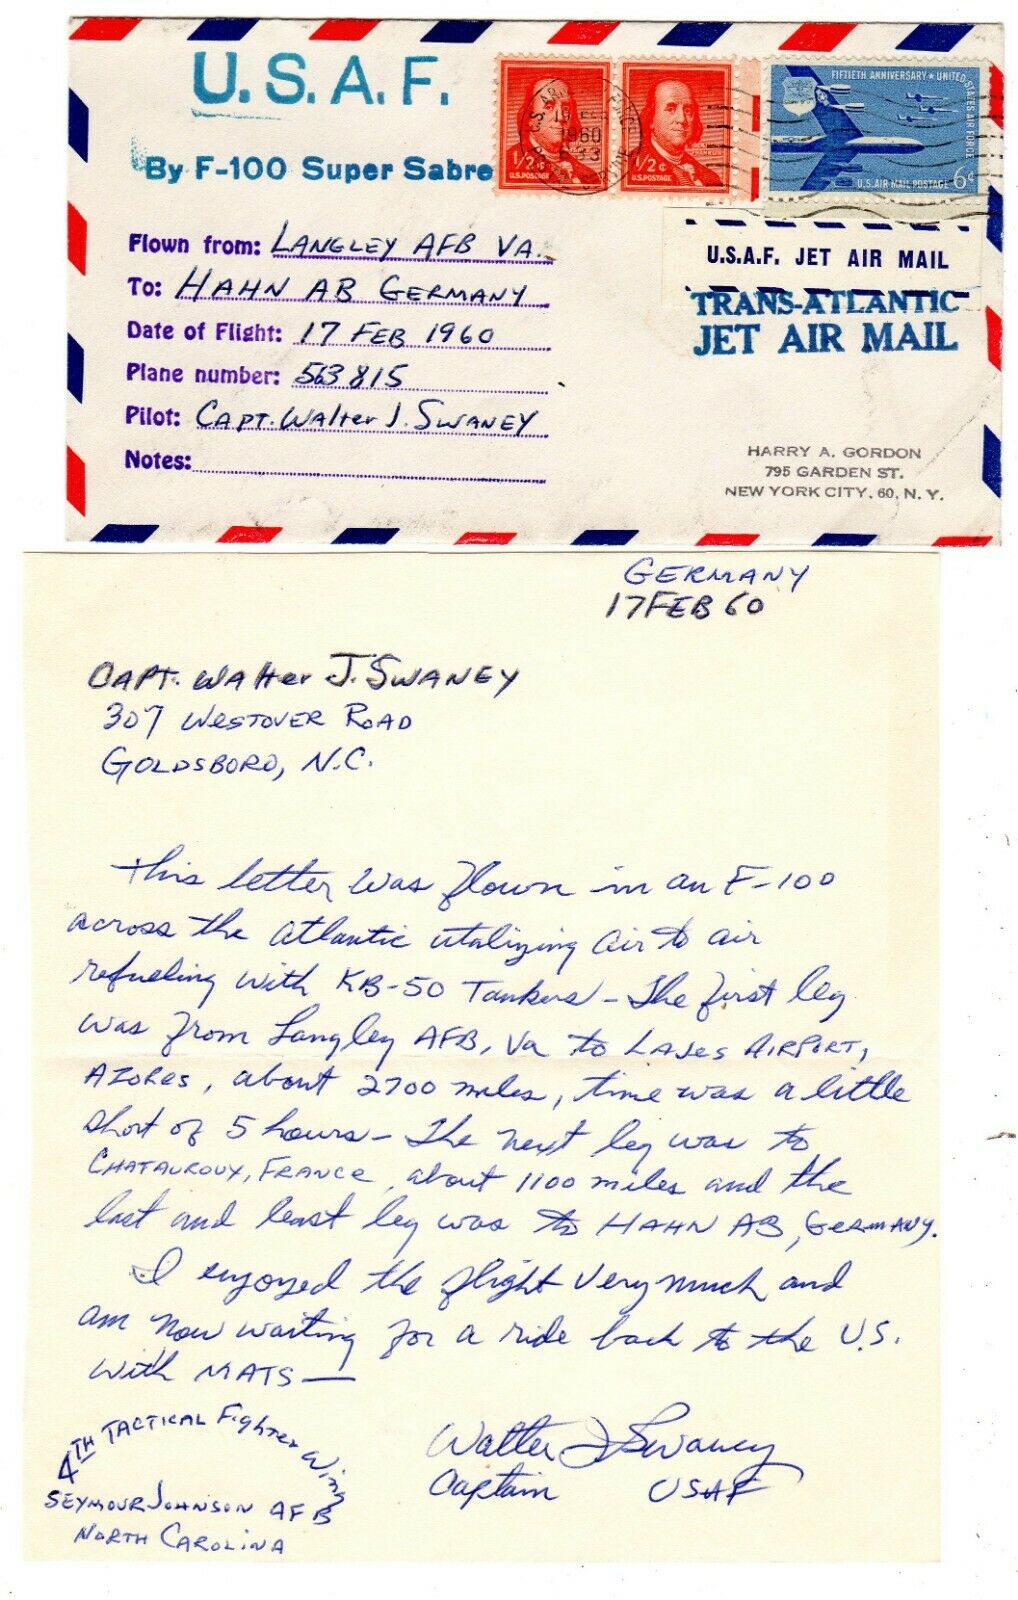 U.S.A.F.
By F-100 Super Sabre
1/2¢
U.S. POSTAGE
1/2¢
U.S. POSTAGE
19 FEB
1960
FIFTIETH ANNIVERSARY ★ UNITED STATES AIR FORCE
U.S. AIR MAIL POSTAGE 6¢
U.S.A.F. JET AIR MAIL
TRANS-ATLANTIC
JET AIR MAIL
Flown from: LANGLEY AFB VA.
To: HAHN AB GERMANY
Date of Flight: 17 FEB 1960
Plane number: 563815
Pilot: CAPT. WALTER J. SWANEY
Notes:
HARRY A. GORDON
795 GARDEN ST.
NEW YORK CITY, 60, N. Y.
GERMANY
17 FEB 60
CAPT. WALTER J. SWANEY
307 WESTOVER ROAD
GOLDSBORO, N.C.
This letter was flown in an F-100
across the Atlantic utalizing air to air
refueling with KB-50 Tankers - The first leg
was from Langley AFB, Va to LAJES AIRPORT,
AZORES, about 2700 miles, time was a little
short of 5 hours - The next leg was to
CHATAUROUX, FRANCE, about 1100 miles and the
last and least leg was to HAHN AB, GERMANY.
I enjoyed the flight very much and
am now waiting for a ride back to the U.S.
with MATS —
Walter J Swaney
Captain USAF
4TH TACTICAL Fighter Wing
SEYMOUR JOHNSON AFB
NORTH CAROLINA